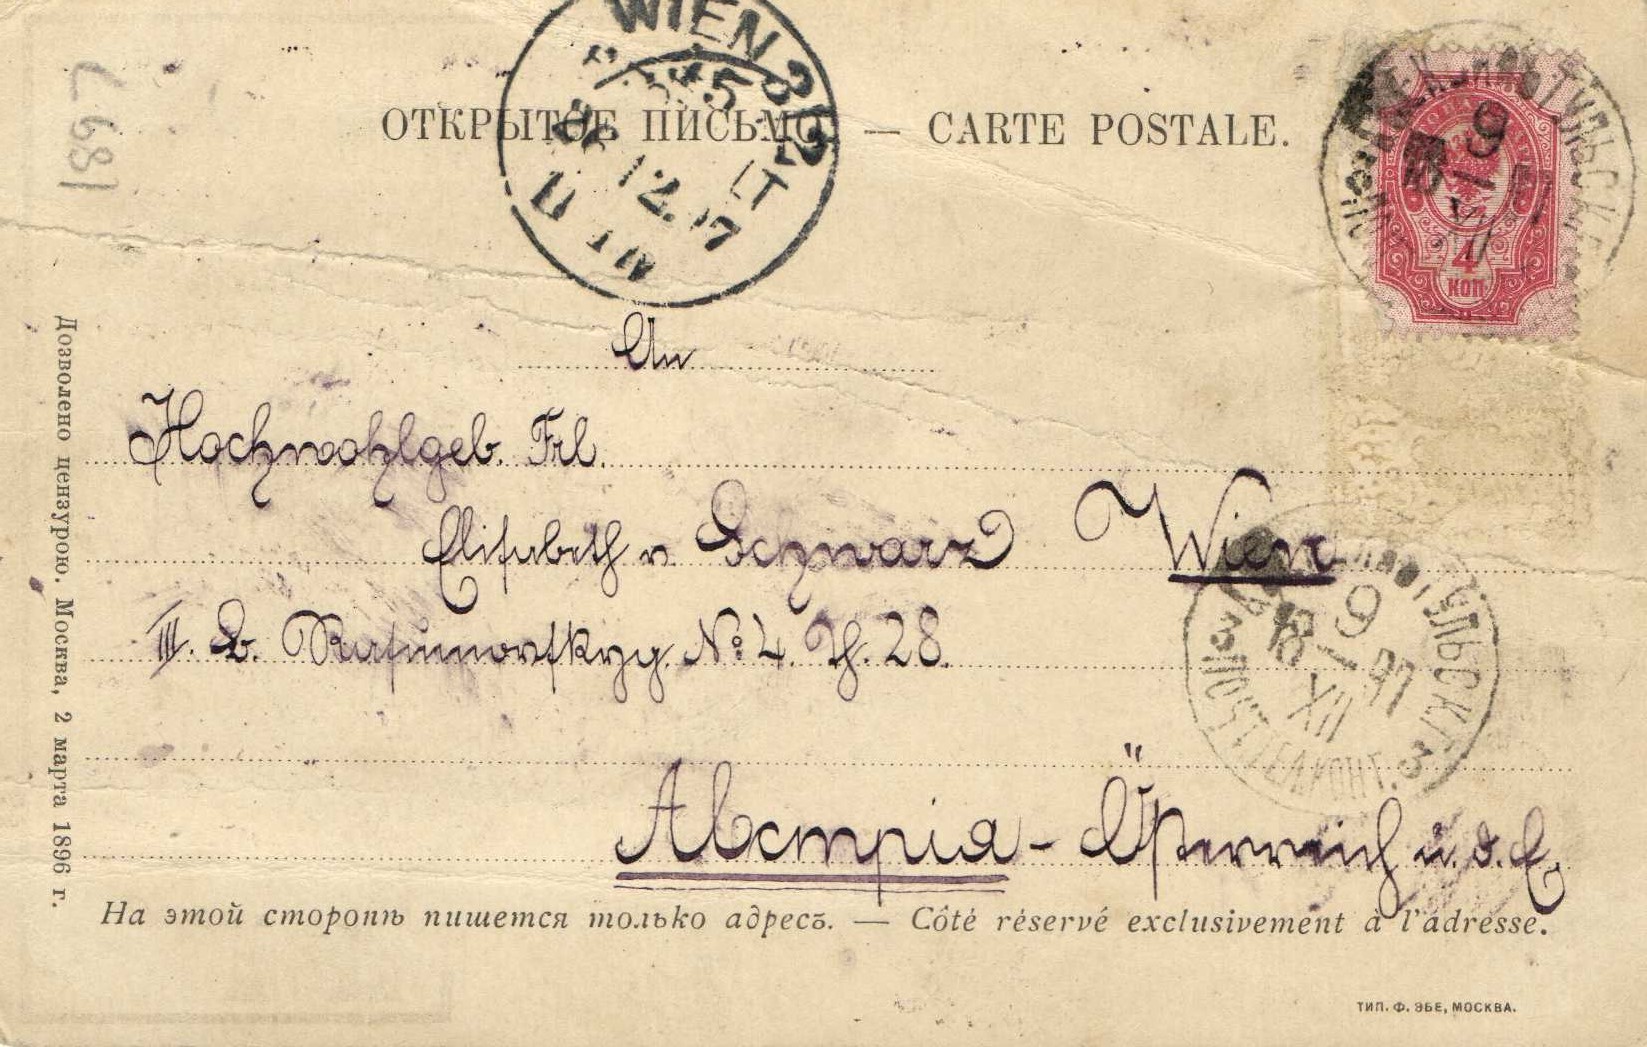 WIEN 3/2
12. 97
ОТКРЫТОЕ ПИСЬМО — CARTE POSTALE.
4
КОП.
9
XII
1897
An
Hochwohlgeb. Frl.
Elisabeth v. Schwarz Wien
III. B. Rasumovskyg. №: 4. Th. 28.
9
18 — 97
XII
ПОЧТ. ТЕЛ. КОНТ. 3
Австрія - Österreich u. d. E.
На этой сторонѣ пишется только адресъ. — Côté réservé exclusivement à l'adresse.
Дозволено цензурою. Москва, 2 марта 1896 г.
ТИП. Ф. ЭБЕ, МОСКВА.